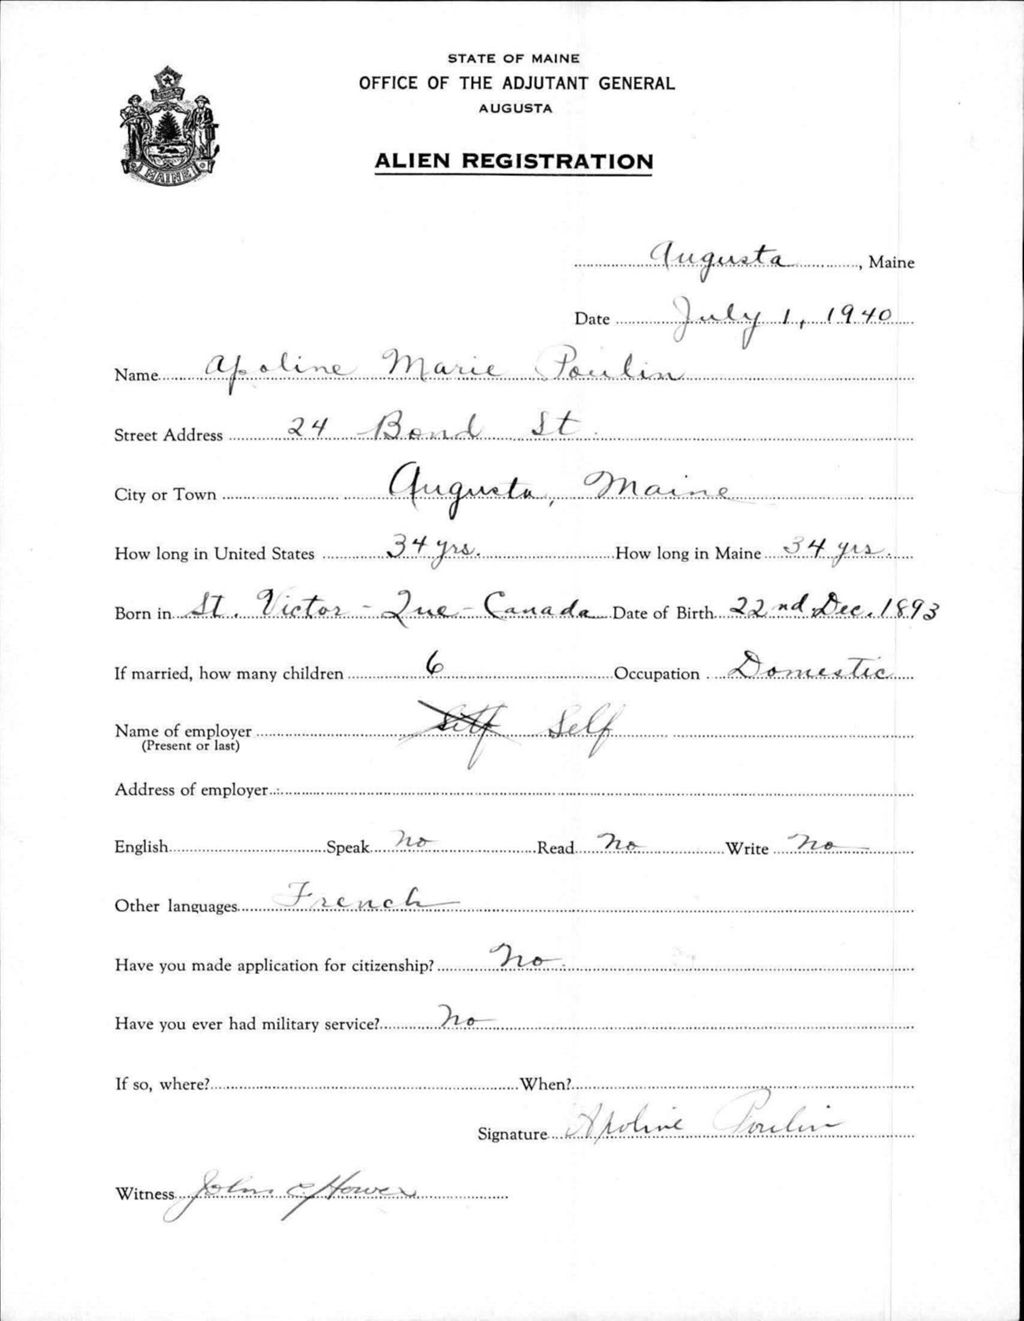 STATE OF MAINE
OFFICE OF THE ADJUTANT GENERAL
AUGUSTA
ALIEN REGISTRATION
MAINE
Augusta, Maine
Date July 1, 1940
Name Apoline Marie Poulin
Street Address 24 Bond St.
City or Town Augusta, Maine
How long in United States 34 yrs. How long in Maine 34 yrs.
Born in St. Victor - Que - Canada Date of Birth 22nd Dec. 1893
If married, how many children 6 Occupation Domestic
Name of employer Self Self
(Present or last)
Address of employer
English Speak No Read No Write No
Other languages French
Have you made application for citizenship? No
Have you ever had military service? No
If so, where? When?
Signature Apoline Poulin
Witness John C